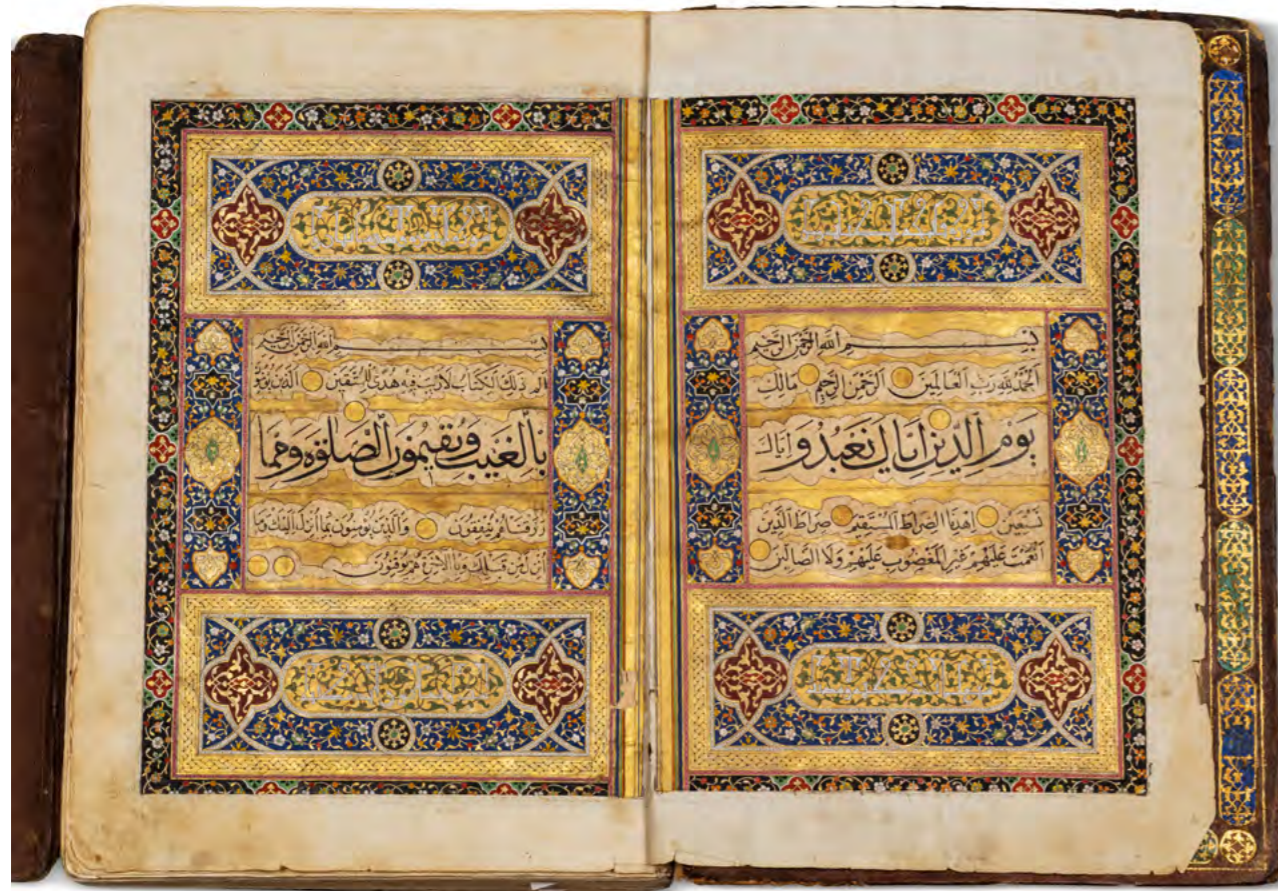 بسم الله الرحمن الرحيم
الحمد لله رب العالمين الرحمن الرحيم مالك
يوم الدين اياك نعبد و اياك
نستعين اهدنا الصراط المستقيم صراط الذين
انعمت عليهم غير المغضوب عليهم ولا الضالين
بسم الله الرحمن الرحيم
الم ذلك الكتاب لا ريب فيه هدى للمتقين الذين يؤمنون
بالغيب ويقيمون الصلوة ومما
رزقناهم ينفقون والذين يؤمنون بما انزل اليك وما
انزل من قبلك وبالاخرة هم يوقنون